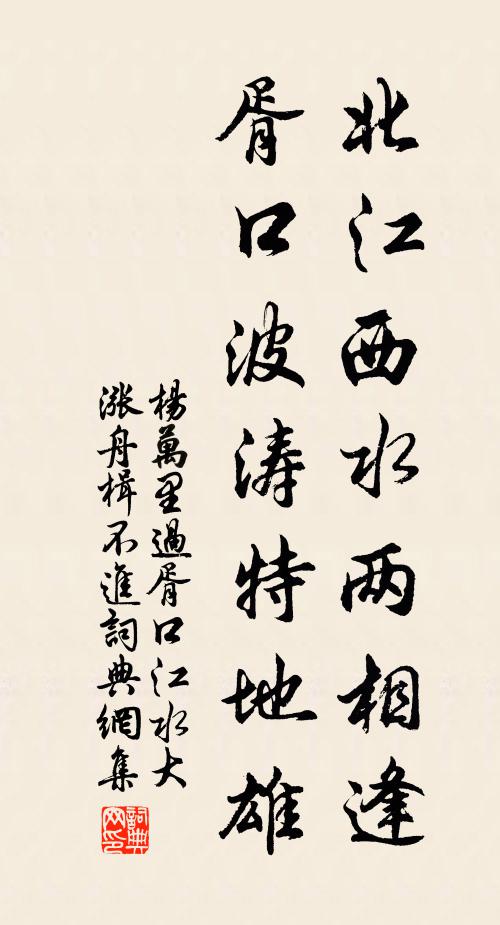 北江西水两相逢
胥口波涛特地雄
楊萬里過胥口江水大
漲舟楫不進詞典網集
詞典
网印